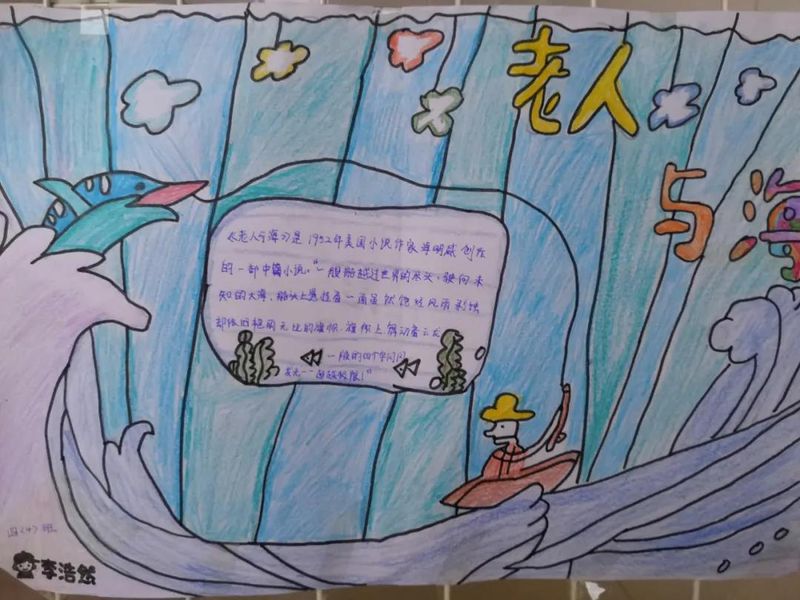 老人
与海
《老人与海》是1952年美国小说作家海明威创在
的一部中篇小说。“一艘船越过世界的尽头，驶向未
知的大海，船头上悬挂着一面虽然饱经风雨剥蚀
却依旧艳丽无比的旗帜，旗帜上舞动着云龙
一般的四个字闪闪
发光——超越极限！”
四<4>班
李浩然